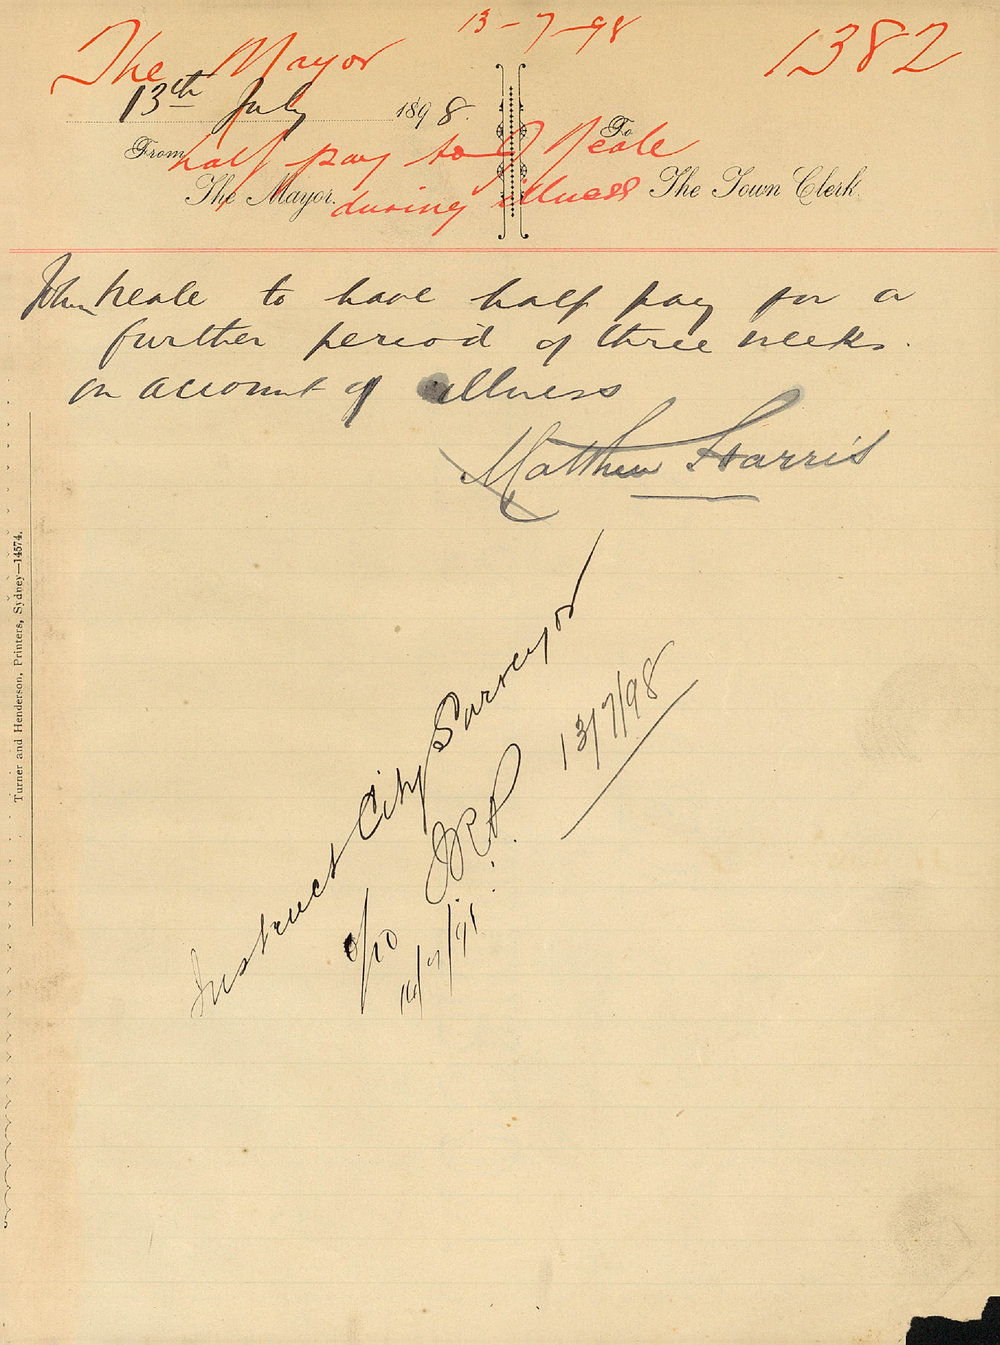 The Mayor 13-7-98 1382
13th July 1898.
From To
half pay to J Neale
The Mayor. The Town Clerk
during illness
John Neale to have half pay for a
further period of three weeks.
on account of illness
Matthew Harris
Instruct City Surveyor
13/7/98
Turner and Henderson, Printers, Sydney—14574.